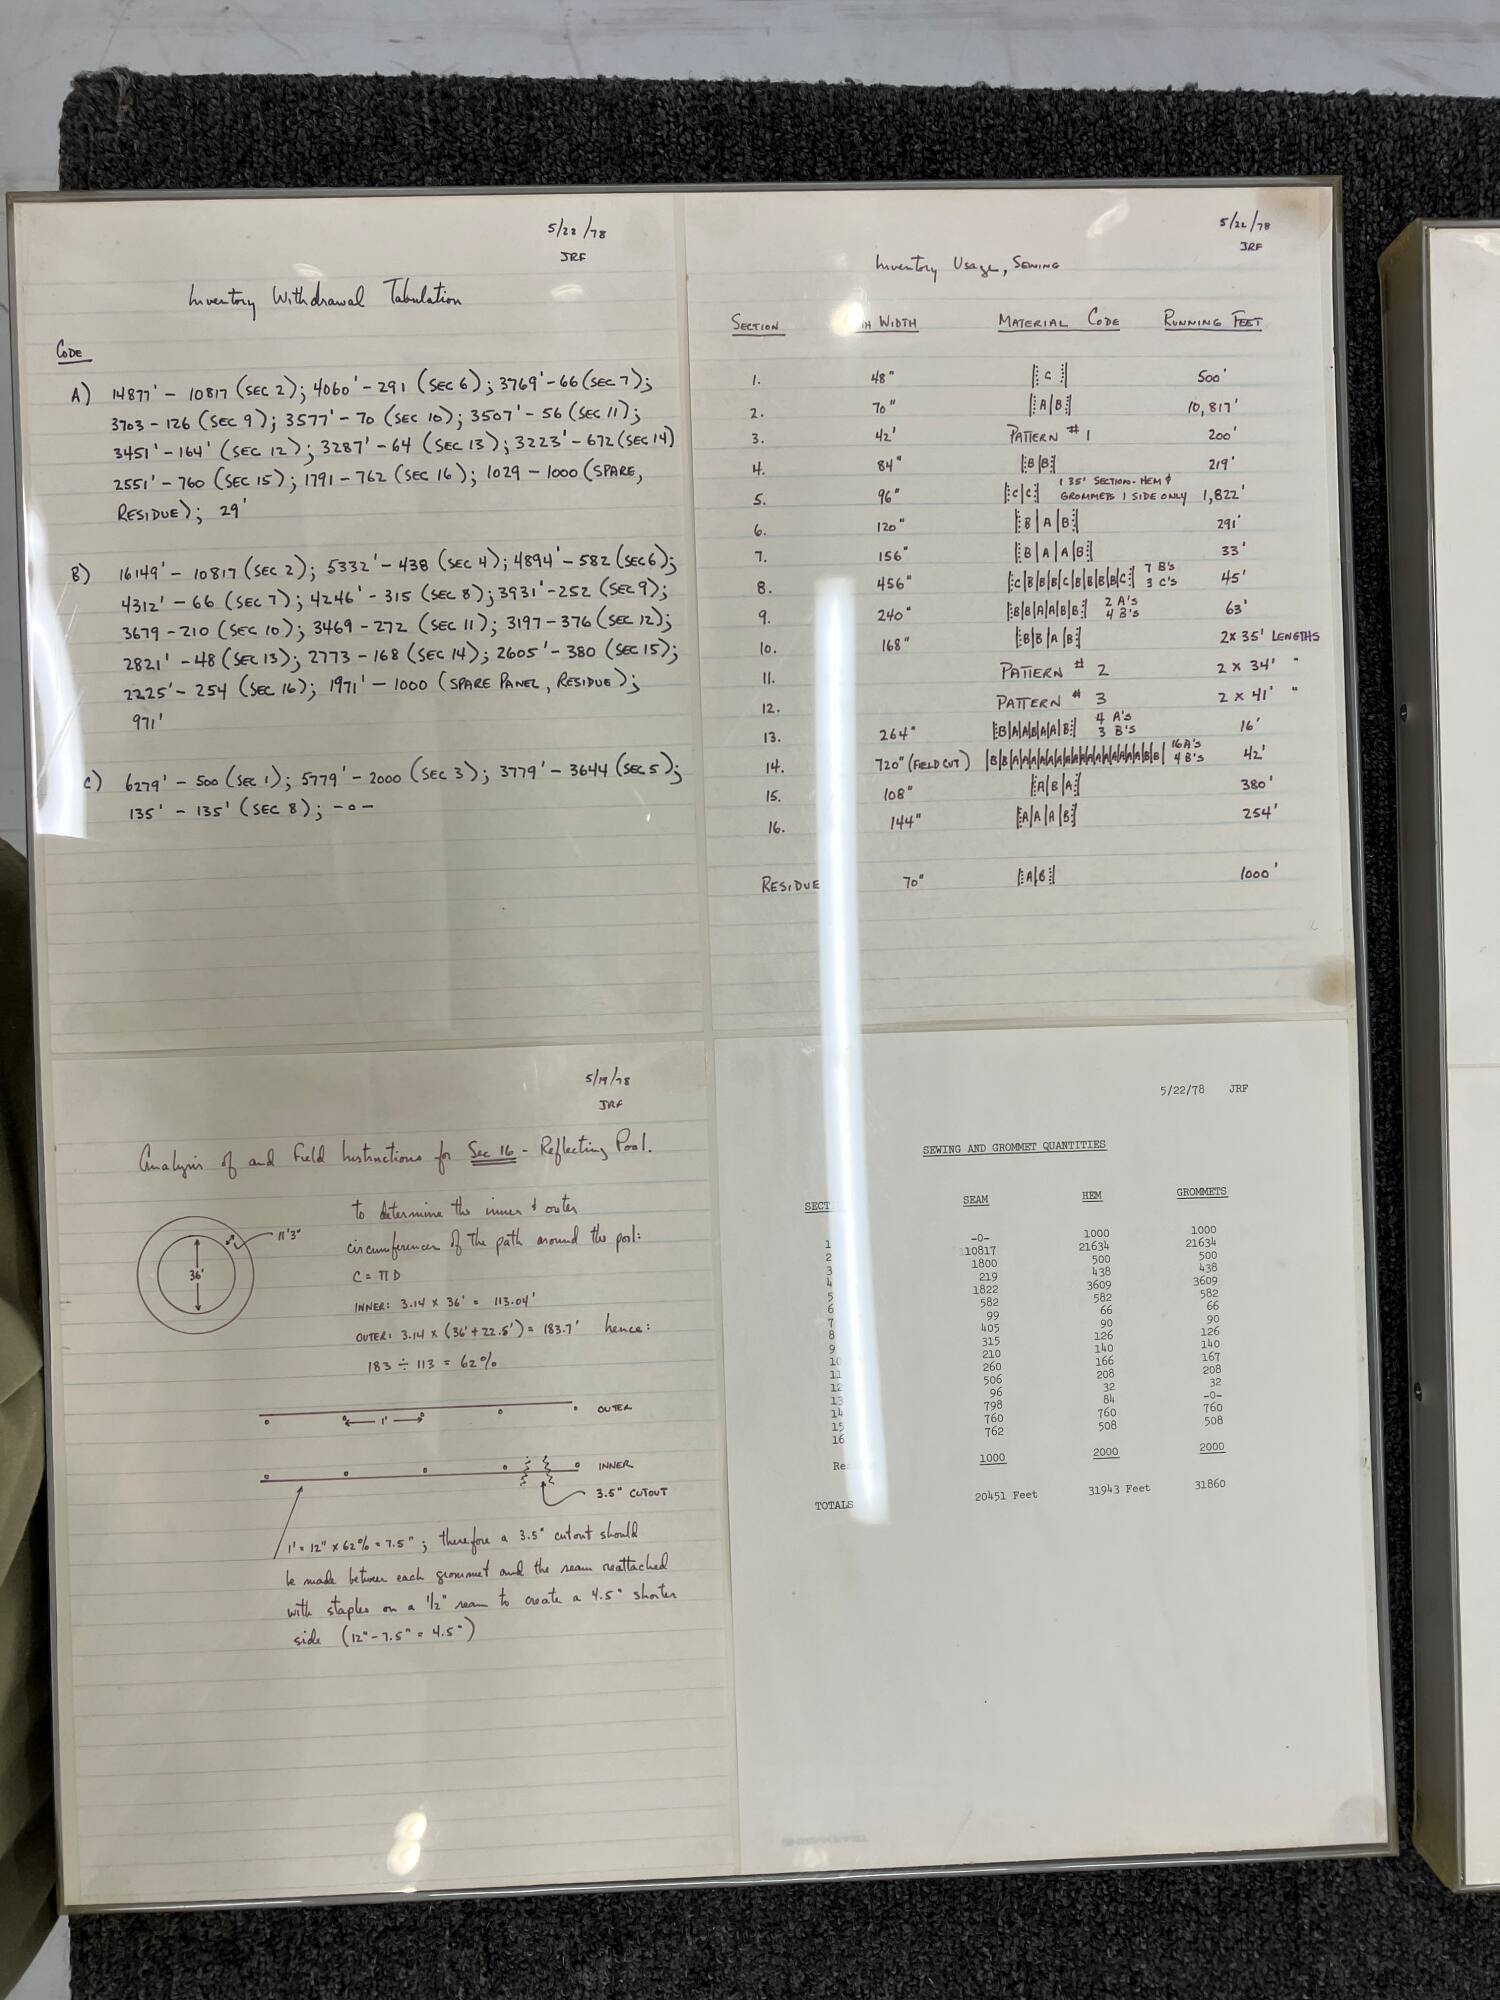 5/22/78
JRF
Inventory Withdrawal Tabulation
Code
A) 14877' - 10817 (SEC 2); 4060' - 291 (SEC 6); 3769' - 66 (SEC 7);
3703 - 126 (SEC 9); 3577' - 70 (SEC 10); 3507' - 56 (SEC 11);
3451' - 164' (SEC 12); 3287' - 64 (SEC 13); 3223' - 672 (SEC 14)
2551' - 760 (SEC 15); 1791 - 762 (SEC 16); 1029 - 1000 (SPARE,
RESIDUE); 29'
B) 16149' - 10817 (SEC 2); 5332' - 438 (SEC 4); 4894' - 582 (SEC 6);
4312' - 66 (SEC 7); 4246' - 315 (SEC 8); 3931' - 252 (SEC 9);
3679 - 210 (SEC 10); 3469 - 272 (SEC 11); 3197 - 376 (SEC 12);
2821' - 48 (SEC 13); 2773 - 168 (SEC 14); 2605' - 380 (SEC 15);
2225' - 254 (SEC 16); 1971' - 1000 (SPARE PANEL, RESIDUE);
971'
C) 6279' - 500 (SEC 1); 5779' - 2000 (SEC 3); 3779' - 3644 (SEC 5);
135' - 135' (SEC 8); -0-
5/22/78
JRF
Inventory Usage, SEWING
SECTION WIDTH MATERIAL CODE RUNNING FEET
1. 48" |C| 500'
2. 70" |A|B| 10,817'
3. 42' PATTERN #1 200'
4. 84" |B|B| 219'
5. 96" |C|C| 1 35' SECTION - HEM & GROMMETS 1 SIDE ONLY 1,822'
6. 120" |B|A|B| 291'
7. 156" |B|A|A|B| 33'
8. 456" |C|B|B|B|C|B|B|B|B|C| 7 B's 3 C's 45'
9. 240" |B|B|A|A|B|B| 2 A's 4 B's 63'
10. 168" |B|B|A|B| 2 x 35' LENGTHS
11. PATTERN # 2 2 x 34' "
12. PATTERN # 3 2 x 41' "
13. 264" |B|A|A|A|A|B| 4 A's 3 B's 16'
14. 720" (FIELD CUT) |B|B|A|A|A|A|A|A|A|A|A|A|A|A|A|A|A|A|B|B| 16 A's 4 B's 42'
15. 108" |A|B|A| 380'
16. 144" |A|A|A|B| 254'
RESIDUE 70" |A|B| 1000'
5/19/78
JRF
Analysis of and Field Instructions for Sec 16 - Reflecting Pool.
to determine the inner & outer
circumferences of the path around the pool:
C = π D
INNER: 3.14 x 36' = 113.04'
OUTER: 3.14 x (36' + 22.5') = 183.7' hence:
183 ÷ 113 = 62%
11'3"
36'
OUTER
1'
INNER
3.5" CUTOUT
1' = 12" x 62% = 7.5"; therefore a 3.5" cutout should
be made between each grommet and the seam reattached
with staples on a 1/2" seam to create a 4.5" shorter
side (12" - 7.5" = 4.5")
5/22/78 JRF
SEWING AND GROMMET QUANTITIES
SECT SEAM HEM GROMMETS
1 -0- 1000 1000
2 10817 21634 21634
3 1800 500 500
4 219 438 438
5 1822 3609 3609
6 582 582 582
7 99 66 66
8 405 90 90
9 315 126 126
10 210 140 140
11 260 166 167
12 506 208 208
13 96 32 32
14 798 84 -0-
15 760 760 760
16 762 508 508
Re 1000 2000 2000
TOTALS 20451 Feet 31943 Feet 31860